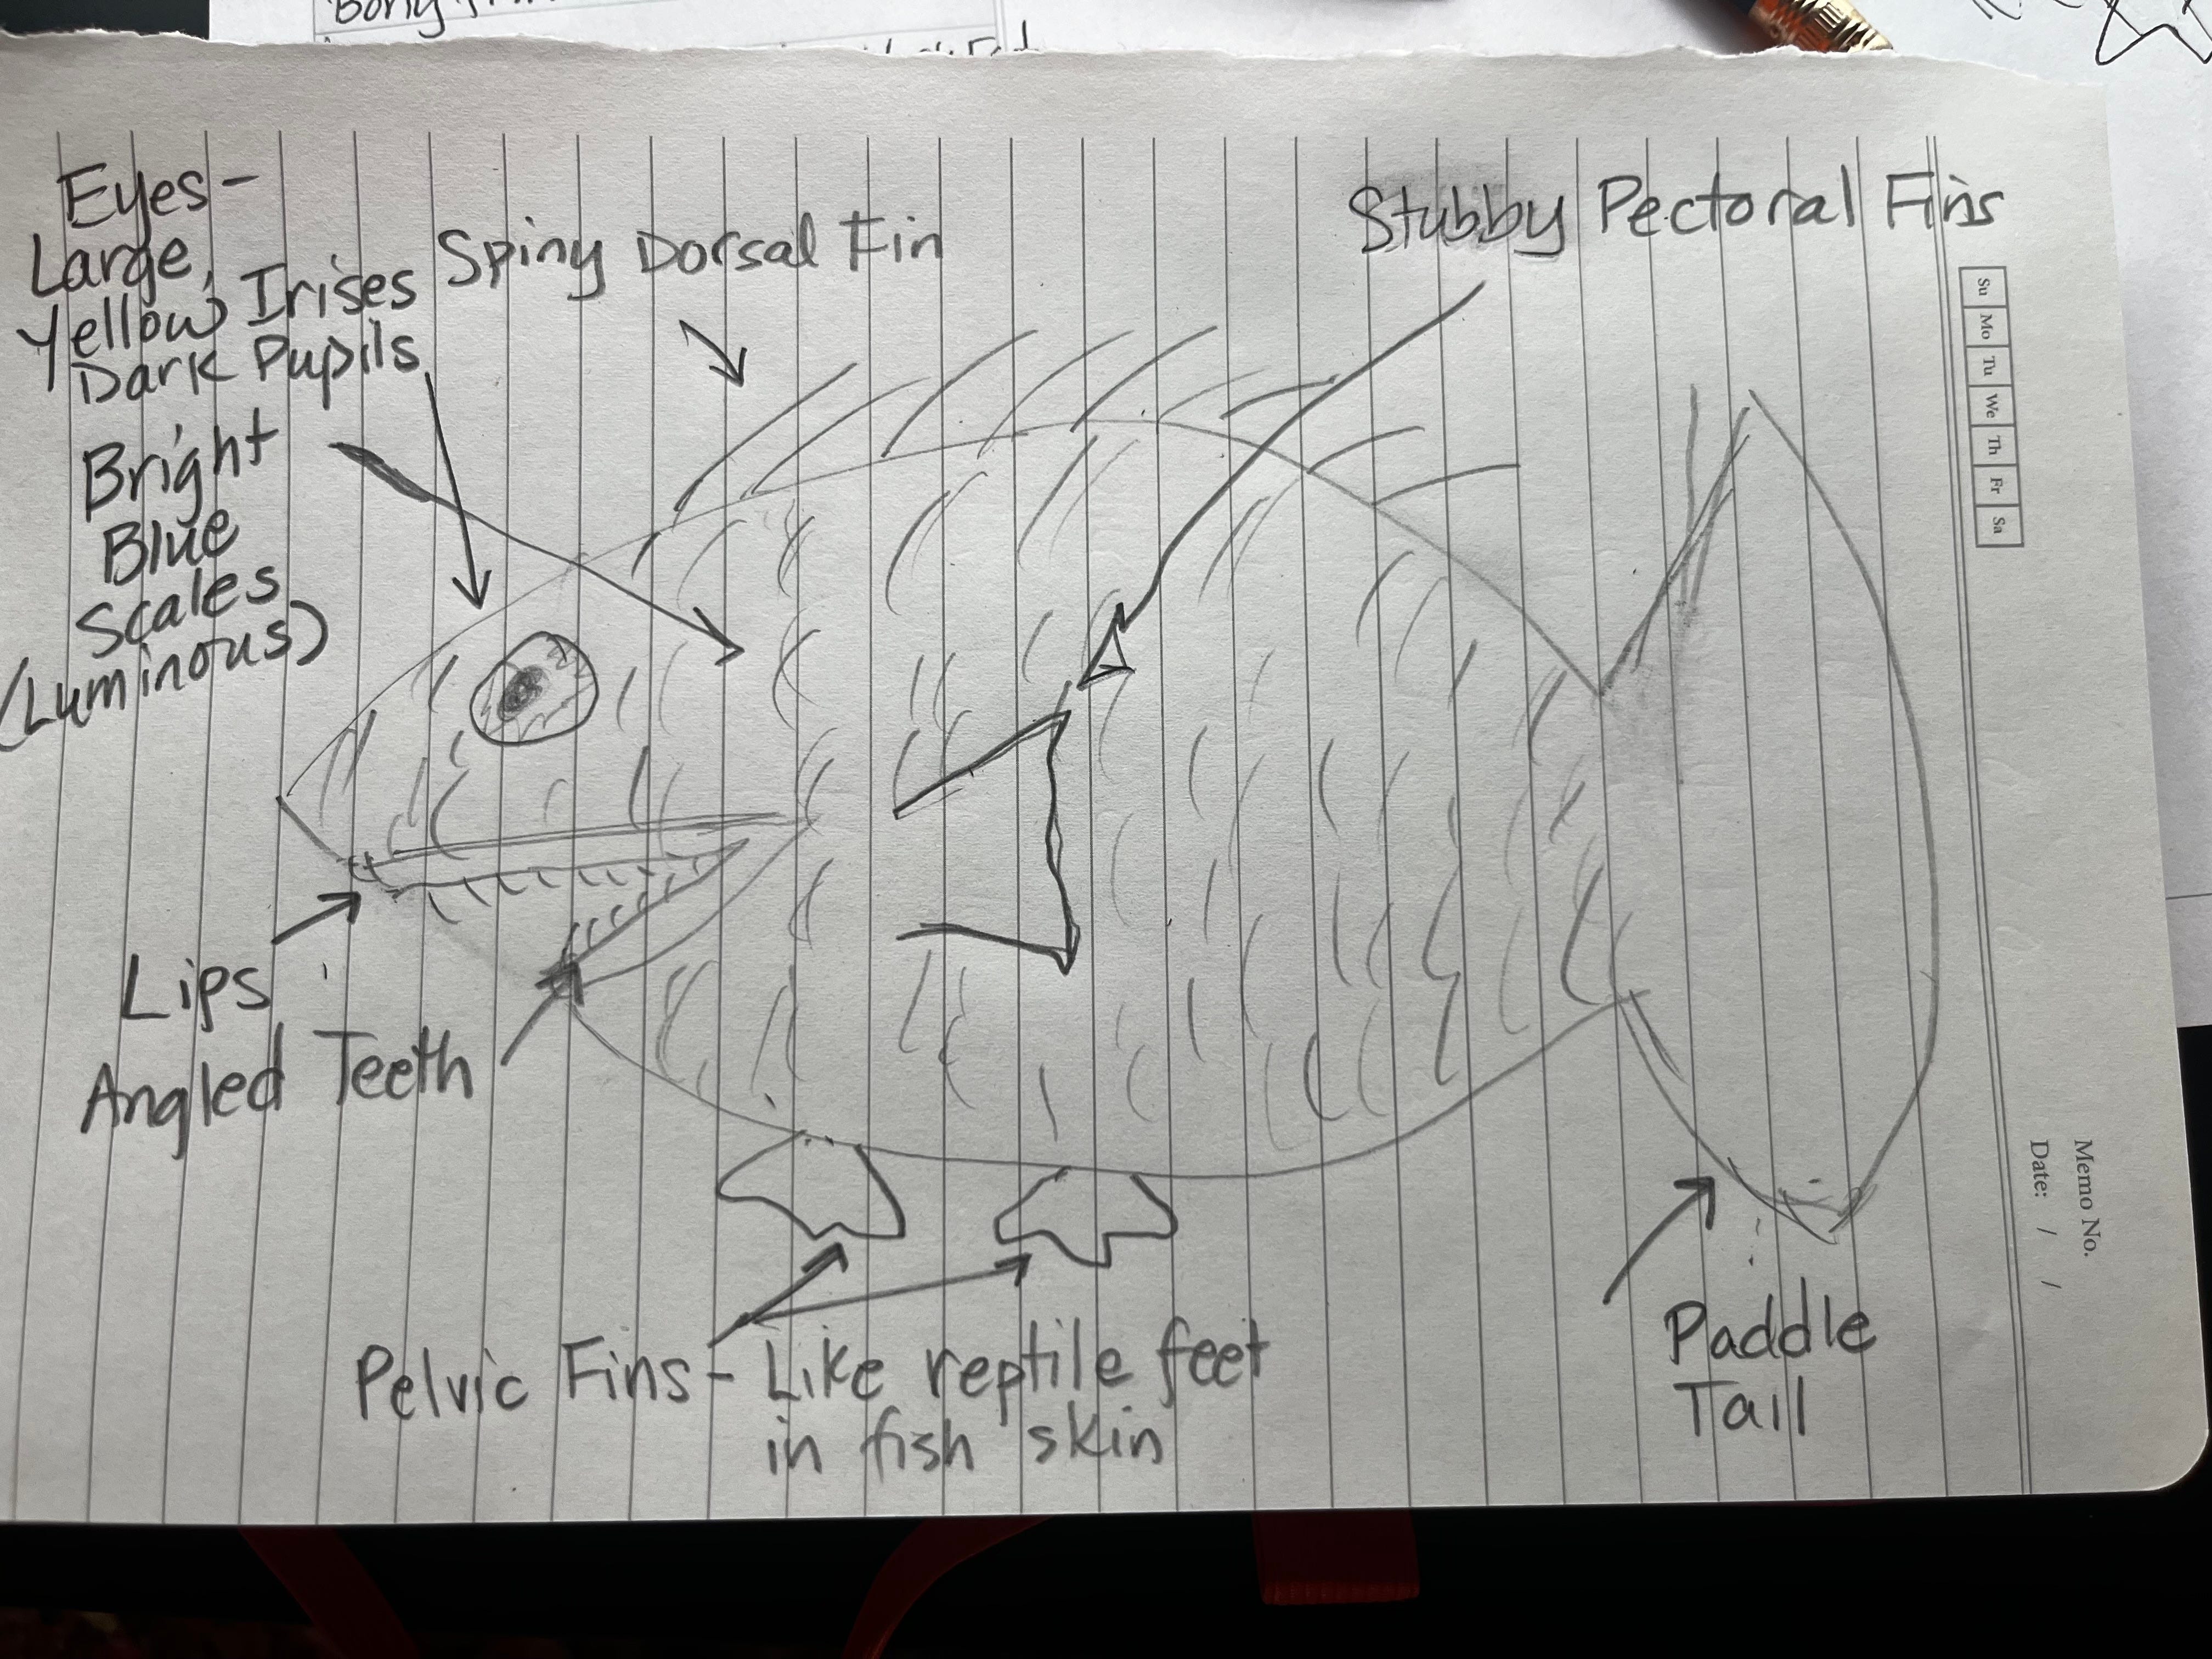 Bony
Eyes-
Large,
Yellow Irises
Dark Pupils
Spiny Dorsal Fin
Stubby Pectoral Fins
Bright
Blue
Scales
(Luminous)
Su Mo Tu We Th Fr Sa
Lips
Angled Teeth
Pelvic Fins - Like reptile feet
in fish skin
Paddle
Tail
Memo No.
Date: / /